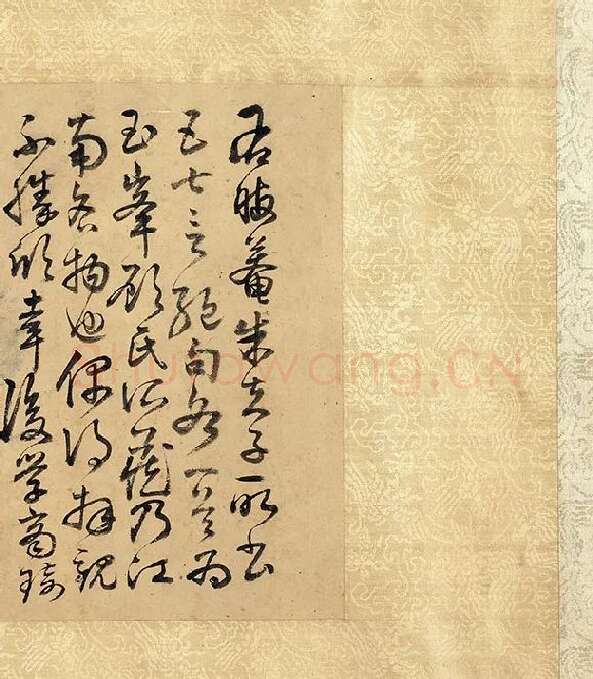 右晦菴朱夫子所書
五七言絕句各一首為
玉峯顧氏所藏乃江
南名物也偶得拜觀
不勝欣幸後學商琦
shufawang.CN